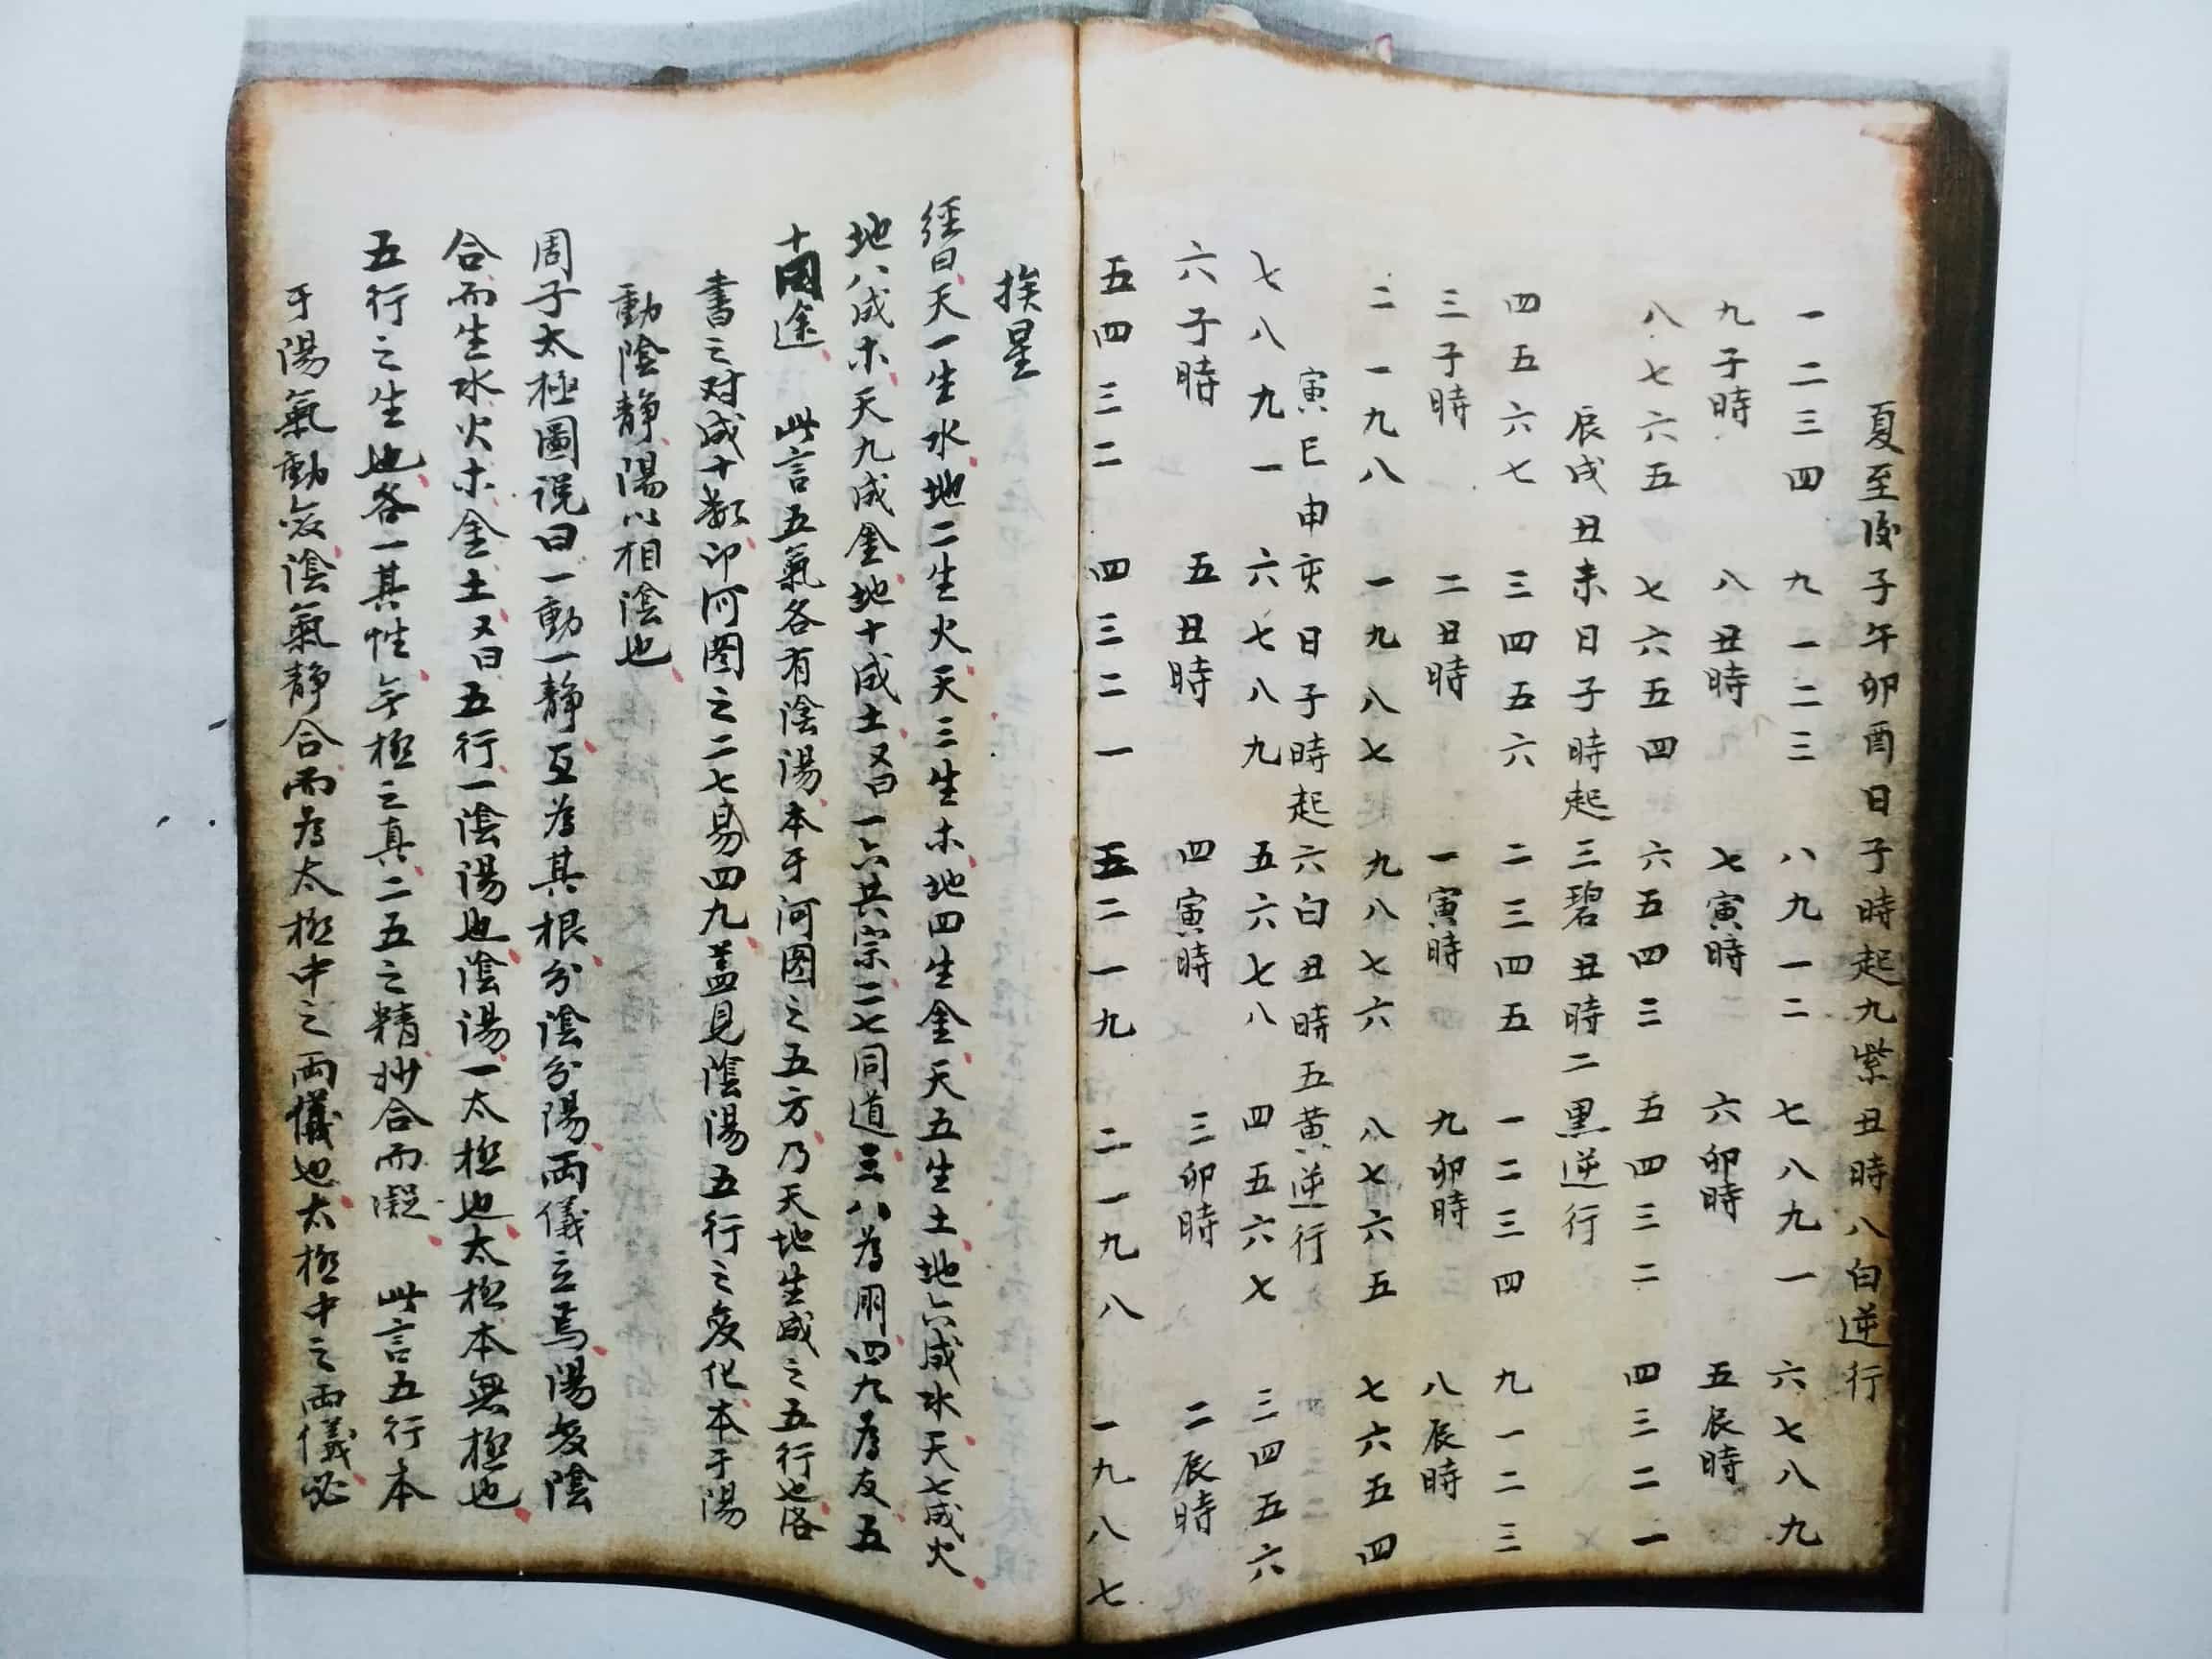 夏至後子午卯酉日子時起九紫丑時八白逆行
一二三四 九一二三 八九一二 七八九一 六七八九
九子時 八丑時 七寅時 六卯時 五辰時
八七六五 七六五四 六五四三 五四三二 四三二一
辰戌丑未日子時起三碧丑時二黑逆行
四五六七 三四五六 二三四五 一二三四 九一二三
三子時 二丑時 一寅時 九卯時 八辰時
二一九八 一九八七 九八七六 八七六五 七六五四
寅巳申亥日子時起六白丑時五黃逆行
七八九一 六七八九 五六七八 四五六七 三四五六
六子時 五丑時 四寅時 三卯時 二辰時
五四三二 四三二一 五二一九 二一九八 一九八七
挨星
經曰天一生水地二生火天三生木地四生金天五生土地六成水天七成火
地八成木天九成金地十成土又曰一六共宗二七同道三八為朋四九為友五
十同途 此言五氣各有陰陽本于河图之五方乃天地生成之五行也洛
書之对成十数卬河图之二七易四九蓋見陰陽五行之变化本于陽
動陰静陽以相陰也
周子太極圖説曰一動一静互為其根分陰分陽両儀立焉陽变陰
合而生水火木金土又曰五行一陰陽也陰陽一太極也太極本無極也
五行之生也各一其性無極之真二五之精妙合而凝 此言五行本
于陽氣動变陰氣静合而為太極中之両儀也太極中之両儀必